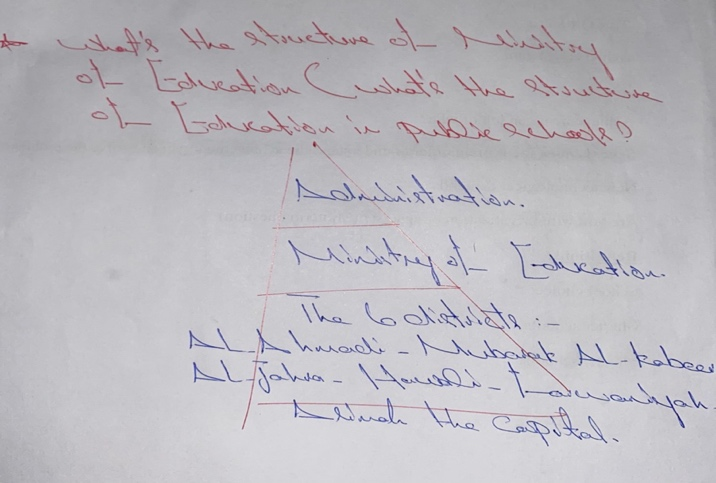 What's the structure of Ministry
of Education (what's the structure
of Education in public schools?
Administration.
Ministry of Education.
The 6 districts :-
AL-Ahmadi - Mubarak AL-kabeer
AL-Jahra - Hawalli - Farwaniyah.
the Capital.